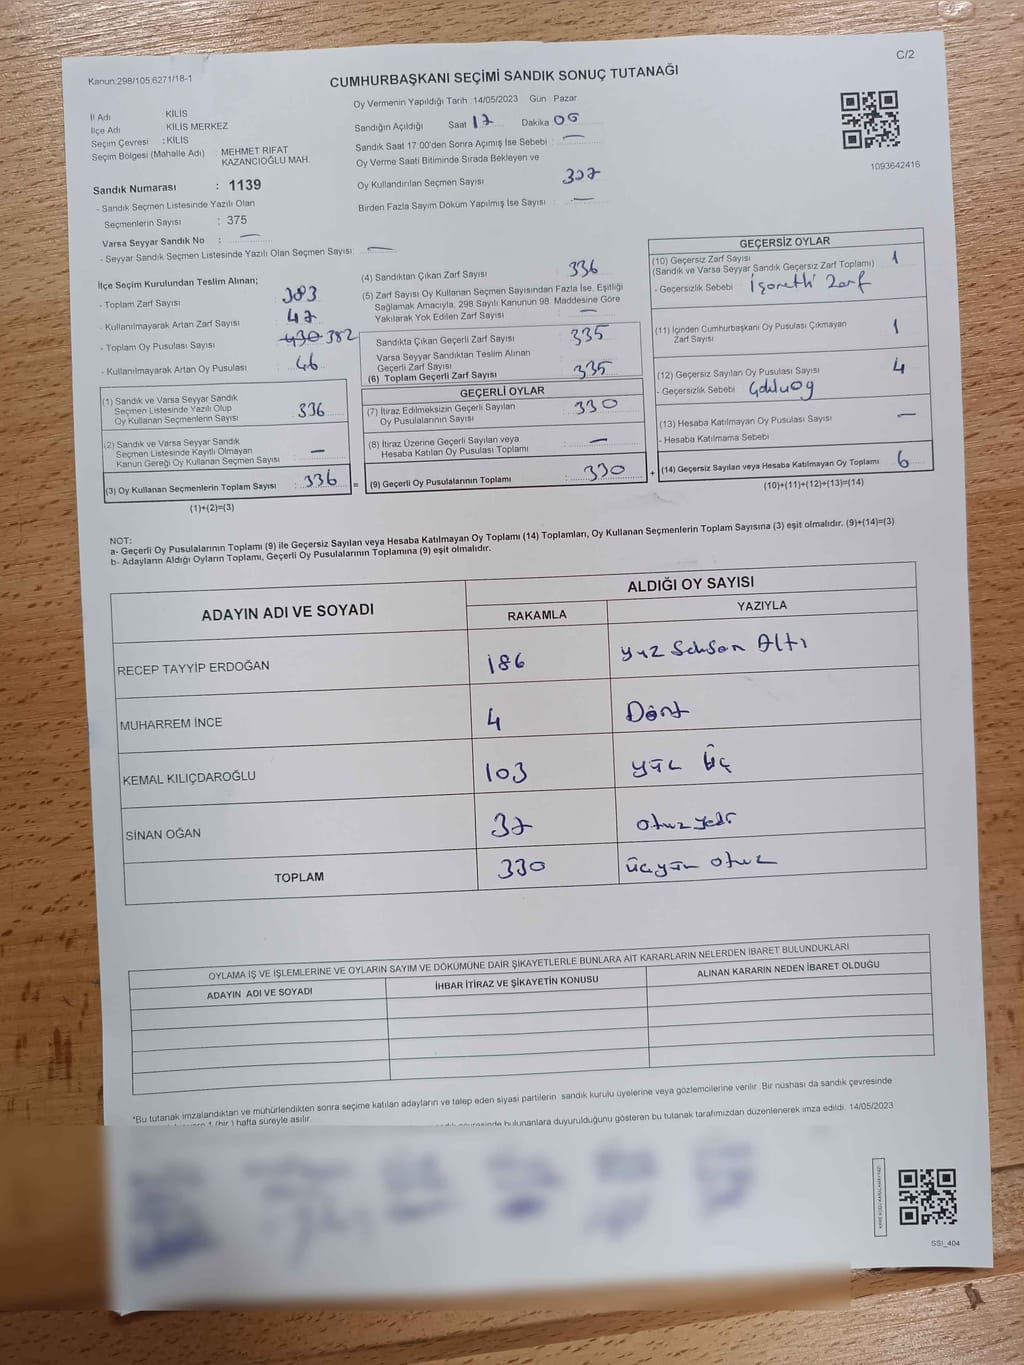 Kanun:298/105.6271/18-1
C/2
CUMHURBAŞKANI SEÇİMİ SANDIK SONUÇ TUTANAĞI
Oy Vermenin Yapıldığı Tarih :14/05/2023 Gün : Pazar
İl Adı KİLİS
İlçe Adı KİLİS MERKEZ
Seçim Çevresi : KİLİS
Seçim Bölgesi (Mahalle Adı) : MEHMET RIFAT
KAZANCIOĞLU MAH.
Sandık Numarası : 1139
- Sandık Seçmen Listesinde Yazılı Olan
Seçmenlerin Sayısı : 375
Varsa Seyyar Sandık No : —
- Seyyar Sandık Seçmen Listesinde Yazılı Olan Seçmen Sayısı: —
Sandığın Açıldığı Saat 17 Dakika 06
Sandık Saat 17:00'den Sonra Açımış İse Sebebi : —
Oy Verme Saati Bitiminde Sırada Bekleyen ve
Oy Kullandırılan Seçmen Sayısı 307
Birden Fazla Sayım Döküm Yapılmış İse Sayısı : —
1093642416
İlçe Seçim Kurulundan Teslim Alınan;
- Toplam Zarf Sayısı : 383
- Kullanılmayarak Artan Zarf Sayısı : 47
- Toplam Oy Pusulası Sayısı : 430 382
- Kullanılmayarak Artan Oy Pusulası : 46
(1) Sandık ve Varsa Seyyar Sandık
Seçmen Listesinde Yazılı Olup
Oy Kullanan Seçmenlerin Sayısı : 336
(2) Sandık ve Varsa Seyyar Sandık
Seçmen Listesinde Kayıtlı Olmayan
Kanun Gereği Oy Kullanan Seçmen Sayısı : —
(3) Oy Kullanan Seçmenlerin Toplam Sayısı : 336
(1)+(2)=(3)
(4) Sandıktan Çıkan Zarf Sayısı : 336
(5) Zarf Sayısı Oy Kullanan Seçmen Sayısından Fazla İse, Eşitliği
Sağlamak Amacıyla, 298 Sayılı Kanunun 98. Maddesine Göre
Yakılarak Yok Edilen Zarf Sayısı : —
Sandıkta Çıkan Geçerli Zarf Sayısı : 335
Varsa Seyyar Sandıktan Teslim Alınan
Geçerli Zarf Sayısı
(6) Toplam Geçerli Zarf Sayısı : 335
GEÇERLİ OYLAR
(7) İtiraz Edilmeksizin Geçerli Sayılan
Oy Pusulalarının Sayısı : 330
(8) İtiraz Üzerine Geçerli Sayılan veya
Hesaba Katılan Oy Pusulası Toplamı : —
= (9) Geçerli Oy Pusulalarının Toplamı : 330 +
GEÇERSİZ OYLAR
(10) Geçersiz Zarf Sayısı
(Sandık ve Varsa Seyyar Sandık Geçersiz Zarf Toplamı) : 1
- Geçersizlik Sebebi : İşaretli Zarf
(11) İçinden Cumhurbaşkanı Oy Pusulası Çıkmayan
Zarf Sayısı : 1
(12) Geçersiz Sayılan Oy Pusulası Sayısı : 4
- Geçersizlik Sebebi
(13) Hesaba Katılmayan Oy Pusulası Sayısı : —
- Hesaba Katılmama Sebebi :
(14) Geçersiz Sayılan veya Hesaba Katılmayan Oy Toplamı : 6
(10)+(11)+(12)+(13)=(14)
NOT:
a- Geçerli Oy Pusulalarının Toplamı (9) ile Geçersiz Sayılan veya Hesaba Katılmayan Oy Toplamı (14) Toplamları, Oy Kullanan Seçmenlerin Toplam Sayısına (3) eşit olmalıdır. (9)+(14)=(3)
b- Adayların Aldığı Oyların Toplamı, Geçerli Oy Pusulalarının Toplamına (9) eşit olmalıdır.
ADAYIN ADI VE SOYADI
ALDIĞI OY SAYISI
RAKAMLA YAZIYLA
RECEP TAYYİP ERDOĞAN 186 yüz Seksen Altı
MUHARREM İNCE 4 Dört
KEMAL KILIÇDAROĞLU 103 yüz üç
SİNAN OĞAN 37 otuz yedi
TOPLAM 330 üçyüz otuz
OYLAMA İŞ VE İŞLEMLERİNE VE OYLARIN SAYIM VE DÖKÜMÜNE DAİR ŞİKAYETLERLE BUNLARA AİT KARARLARIN NELERDEN İBARET BULUNDUKLARI
ADAYIN ADI VE SOYADI İHBAR İTİRAZ VE ŞİKAYETİN KONUSU ALINAN KARARIN NEDEN İBARET OLDUĞU
*Bu tutanak imzalandıktan ve mühürlendikten sonra seçime katılan adayların ve talep eden siyasi partilerin sandık kurulu üyelerine veya gözlemcilerine verilir. Bir nüshası da sandık çevresinde
1 (bir) hafta süreyle asılır.
bulunanlara duyurulduğunu gösteren bu tutanak tarafımızdan düzenlenerek imza edildi. 14/05/2023
SSI_404